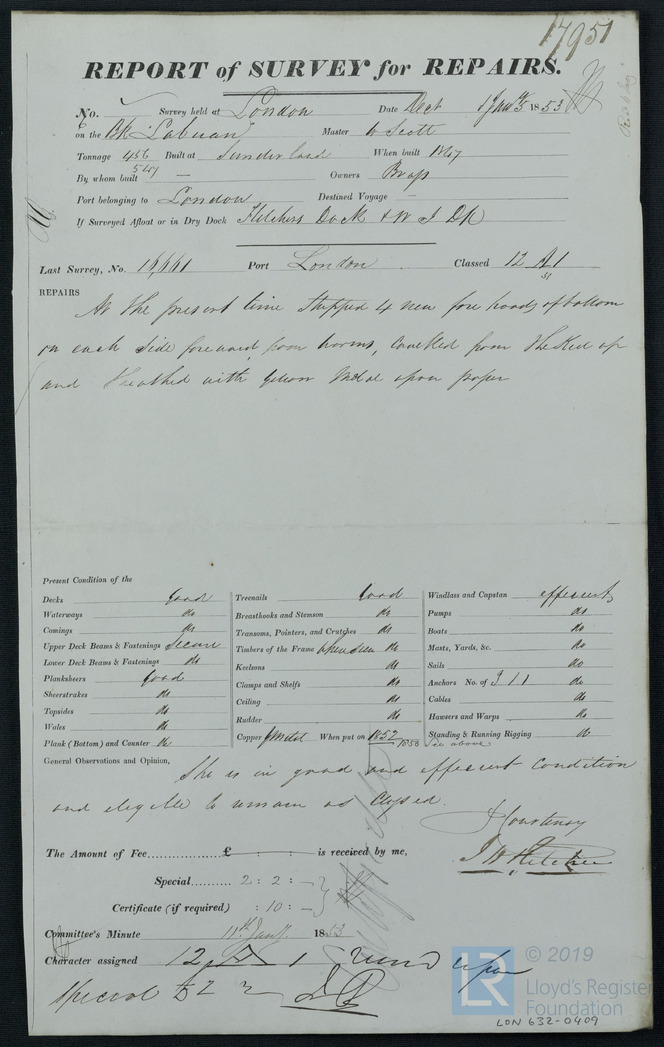 17951
REPORT of SURVEY for REPAIRS.
No. Survey held at London Date Dect 5 Jany 1853
on the Bk "Labuan" Master W Scott
Tonnage 456 Built at Sunderland When built 1847
547
By whom built — Owners
Port belonging to London Destined Voyage —
If Surveyed Afloat or in Dry Dock Fletchers Dock & W I Dk
Last Survey, No. 16,661 Port London Classed 12 A1
REPAIRS
At the present time stripped 4 new fore hoods of bottom
on each side foreward, caulked from the Keel up
and sheathed with yellow Metal upon paper
Present Condition of the
Decks Good
Waterways do
Comings do
Upper Deck Beams & Fastenings Secure
Lower Deck Beams & Fastenings do
Planksheers Good
Sheerstrakes do
Topsides do
Wales do
Plank (Bottom) and Counter do
Treenails Good
Breasthooks and Stemson do
Transoms, Pointers, and Crutches do
Timbers of the Frame when seen do
Keelsons do
Clamps and Shelfs do
Ceiling do
Rudder do
Copper YMetal When put on 1852
Windlass and Capstan effecient
Pumps do
Boats do
Masts, Yards, &c. do
Sails do
Anchors No. of 3 1 1 do
Cables do
Hawsers and Warps do
Standing & Running Rigging do
see above
General Observations and Opinion, She is in good and effecient condition
and elegible to remain as Classed.
J Courtenay
J W Fletcher
The Amount of Fee............... £ : : is received by me,
Special.......... 2 : 2 : –
Certificate (if required) : 10 : –
Committee's Minute 11th Jany. 1853
Character assigned 12 A 1
Special
© 2019
LR
Lloyd's Register
Foundation
LON 632-0409